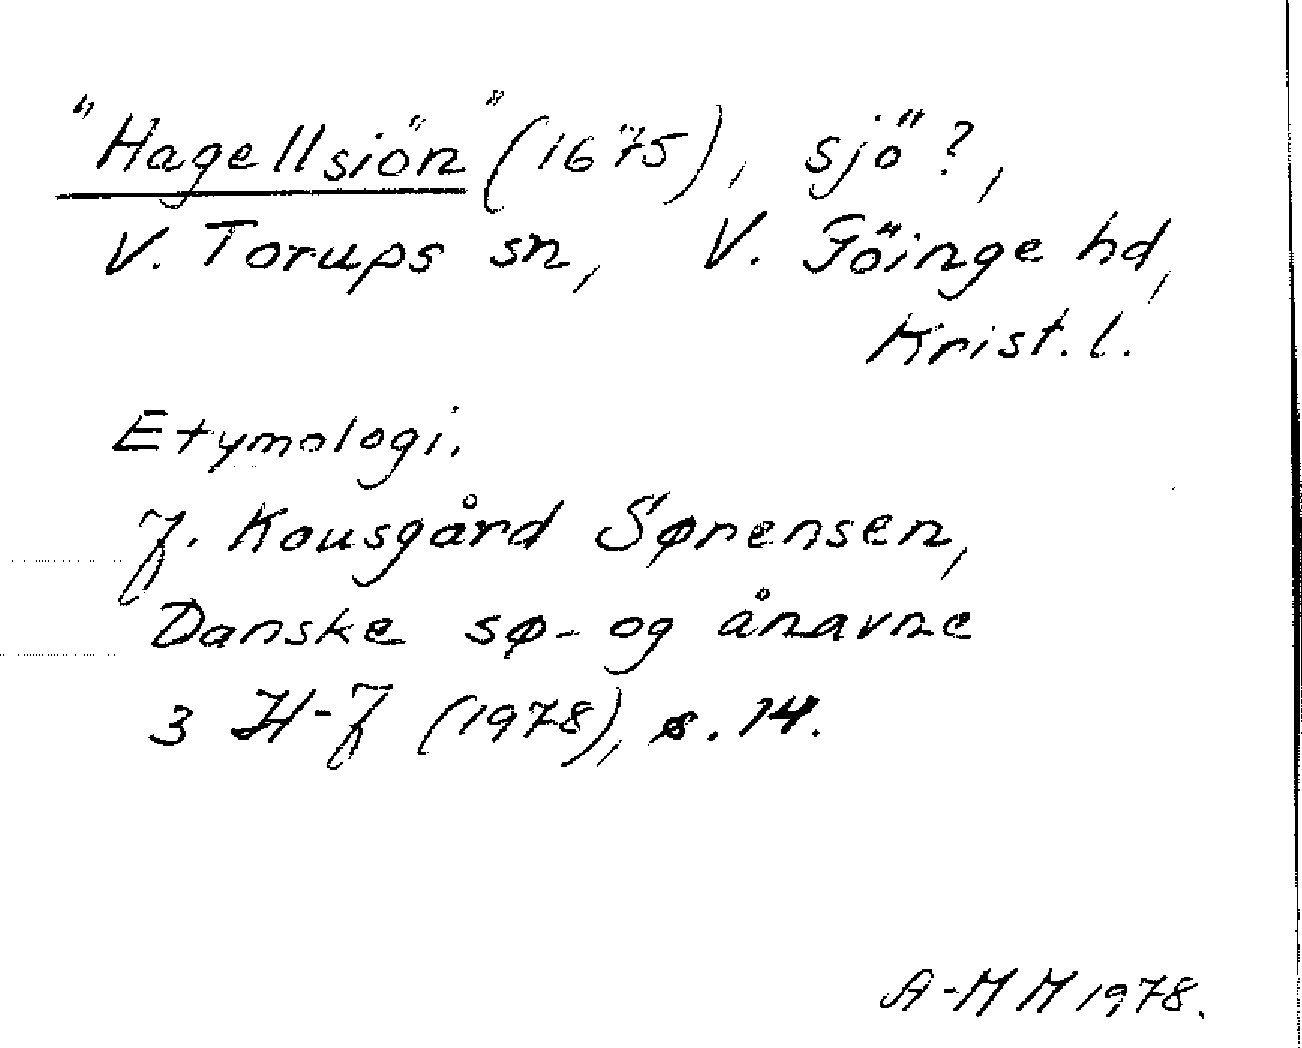 "Hagellsiön" (1675), sjö?,
V. Torups sn, V. Göinge hd,
Krist. l.
Etymologi.
J. Kousgård Sørensen,
Danske sø- og ånavne
3 H-J (1978), s. 14.
A-MM 1978.